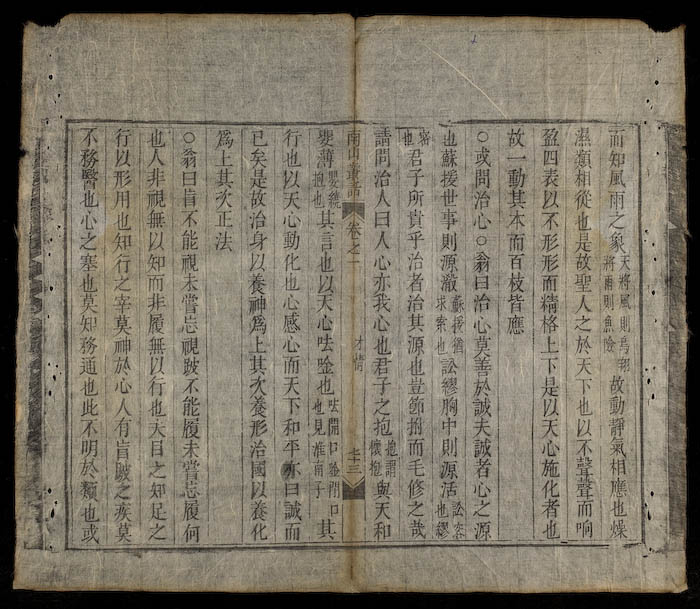 而知風雨之象天將風則鳥翔將雨則魚險故動靜氣相應也燥
濕類相從也是故聖人之於天下也以不聲聲而响
盈四表以不形形而精格上下是以天心施化者也
故一動其本而百枝皆應
○或問治心○翁曰治心莫善於誠夫誠者心之源
也蘇援世事則源澂蘇援猶求索也訟繆胸中則源活訟容也繆
密也君子所貴乎治者治其源也豈節拊而毛修之哉
請問治人曰人心亦我心也君子之抱抱謂懷抱與天和
南山 話 卷之一 才情 三
嬰薄嬰繞抱也其言也以天心呿唫也呿開口唫閉口也見淮南子其
行也以天心動化也心感心而天下和平亦曰誠而
已矣是故治身以養神爲上其次養形治國以養化
爲上其次正法
○翁曰盲不能視未嘗忘視跛不能履未嘗忘履何
也人非視無以知而非履無以行也夫目之知足之
行以形用也知行之宰莫神於心人有盲跛之疾莫
不務醫也心之塞也莫知務通也此不明於類也或